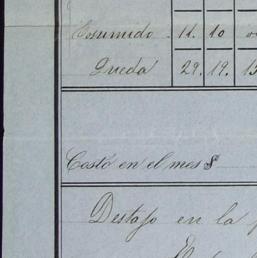 Consumido 11. 10
Queda 29. 19. 15
Costó en el mes $
Destajo en la